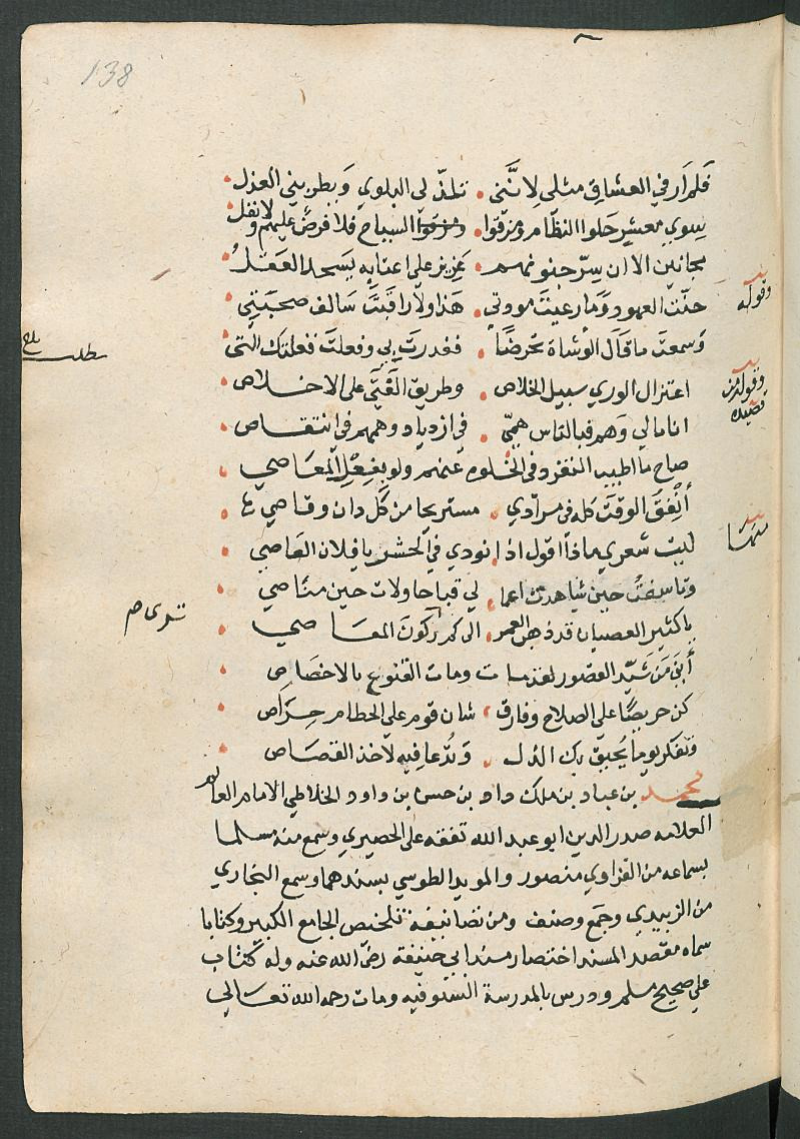 138
فلم ار في العشاق مثلي لانني . تلذ لي البلوي ويطربني العذل
سوي معشر حلوا النظام ومزقوا . السياج فلا فرض عليهم ولا نفل
مجانين الا ان سر جنونهم . عزيز علي اعتابه يسجد العقل
وقوله
خنت العهود وما رعيت مودتي . هذا ولا راقبت سالف صحبتي
وسمعت ما قال الوشاة تحرضا . فغدرت بي وفعلت فعلتك التي
مطلب
وقوله من قصيدة
اعتزال الوري سبيل الخلاص . وطريق الفتي علي الاخلاص
انا مالي وهم فبالناس همي . في ازدياد وهمهم في انتقاص
صاح ما اطيب التفرد في الخلوة عنهم ولو بفعل المعاصي
أنفق الوقت كله في مرادي . مستريحا من كل دان وقاصي
منها
ليت شعري ماذا اقول اذا نودي في الحشر يا فلان العاصي
وتاسفت حين شاهدت اعما . لي قباحا ولات حين مناصي
يا كثير العصيان قد ذهب العمر . الي كم ركون المعاصي
أين من شيد القصور لقد مات ومات القنوع بالاخصاص
كن حريصا علي الصلاح وفارق . شان قوم علي الحطام حراص
وتفكر يوما يحيق بك الذل . وتدعا فيه لاخذ القصاص
محمد بن عباد بن ملك داد بن حسن بن داود الخلاطي الامام العالم
العلامه صدر الدين ابو عبد الله تفقه علي الحصيري وسمع منه مسلما
بسماعه من الفراوي منصور والمويد الطوسي بسندهما وسمع البخاري
من الزبيدي وجمع وصنف ومن تصانيفه تلخيص الجامع الكبير وكتابا
سماه مقصد المسند اختصار مسند ابي حنيفة رضي الله عنه وله كتاب
علي صحيح مسلم ودرس بالمدرسة السيوفيه ومات رحمه الله تعالي